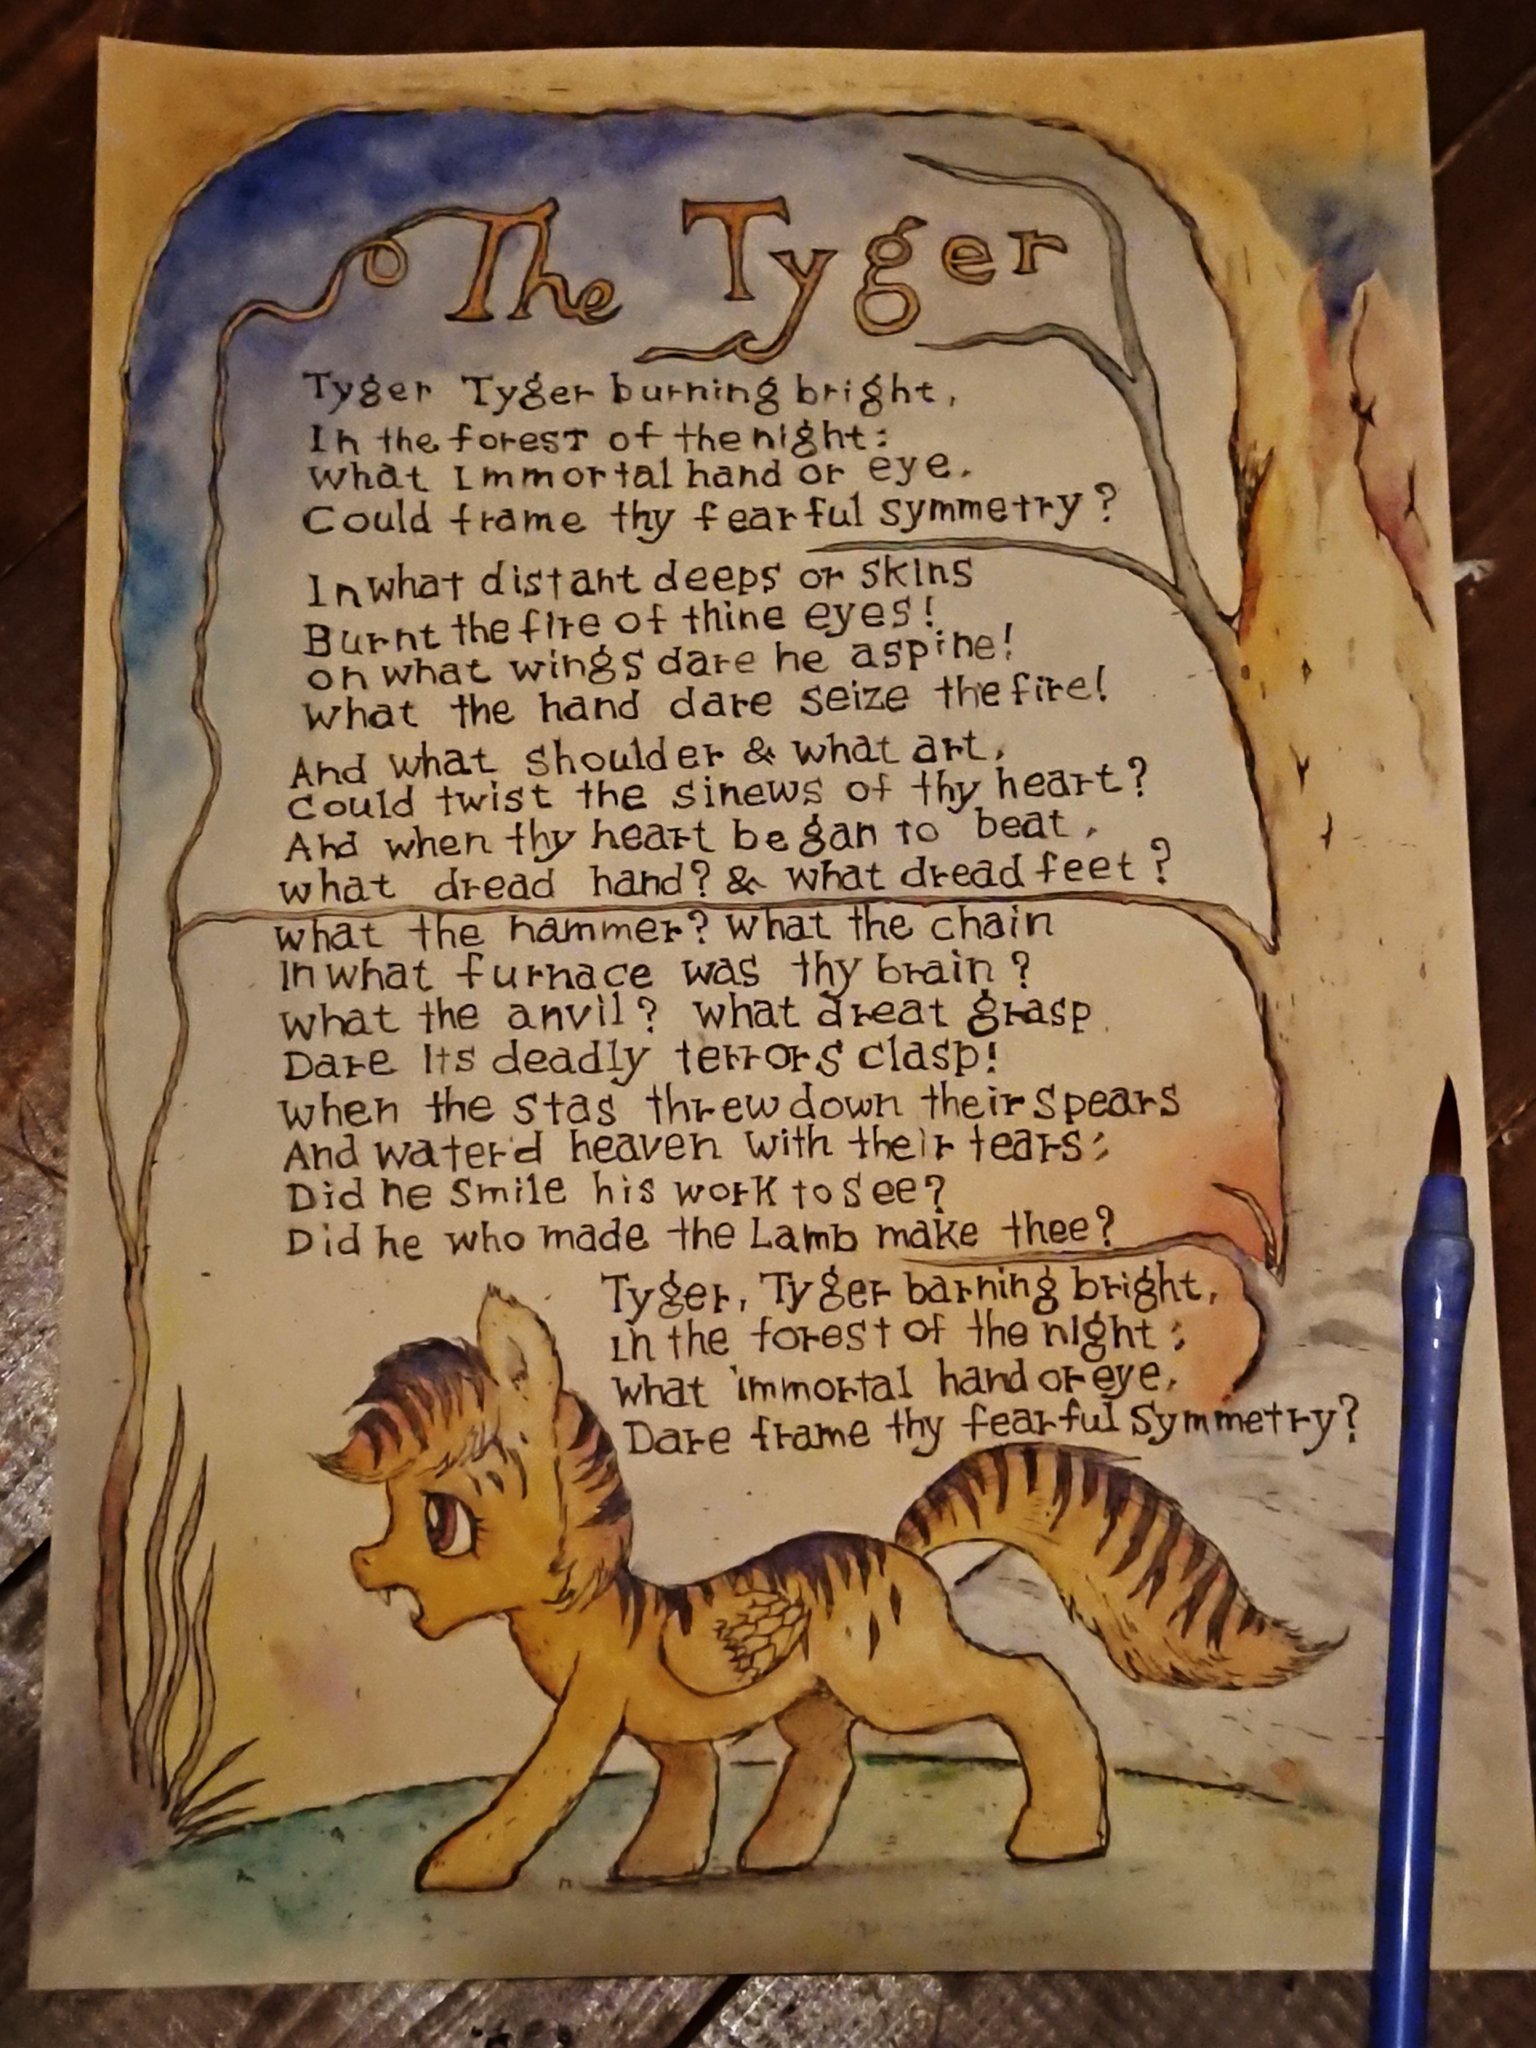 The Tyger
Tyger Tyger burning bright,
In the forest of the night:
What Immortal hand or eye.
Could frame thy fearful symmetry?
In what distant deeps or skins
Burnt the fire of thine eyes!
on what wings dare he aspine!
What the hand dare seize the fire!
And what shoulder & what art,
Could twist the sinews of thy heart?
And when thy heart began to beat,
what dread hand? & what dread feet?
What the hammer? What the chain
In what furnace was thy brain?
What the anvil? What dreat grasp
Dare Its deadly terrors clasp!
When the stas threw down their spears
And water'd heaven with their tears:
Did he smile his work to see?
Did he who made the Lamb make thee?
Tyger, Tyger barning bright,
in the forest of the night:
What immortal hand or eye.
Dare frame thy fearful symmetry?